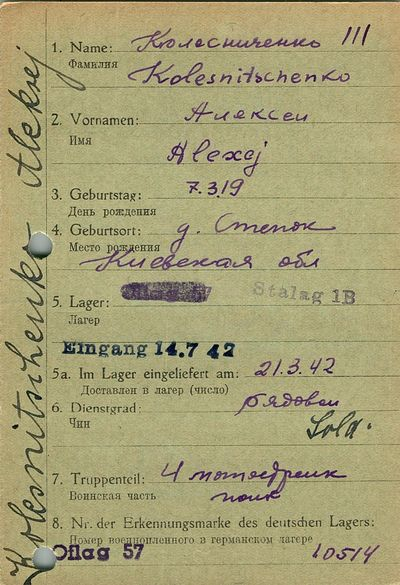 Kolesnitschenko Aleksej
1. Name: Колесниченко III
Фамилия
Kolesnitschenko
2. Vornamen: Алексей
Имя
Alexej
3. Geburtstag: 7.3.19
День рождения
4. Geburtsort: д. Степок
Место рождения
Киевская обл
5. Lager: Stalag 1B
Лагер
Eingang 14.7 42
5a. Im Lager eingeliefert am: 21.3.42
Доставлен в лагер (число)
6. Dienstgrad: рядовой
Чин Sold.
7. Truppenteil: 4 мотострелк
Воинская часть полк
8. Nr. der Erkennungsmarke des deutschen Lagers:
Номер военнопленного в германском лагере
Oflag 57 10514